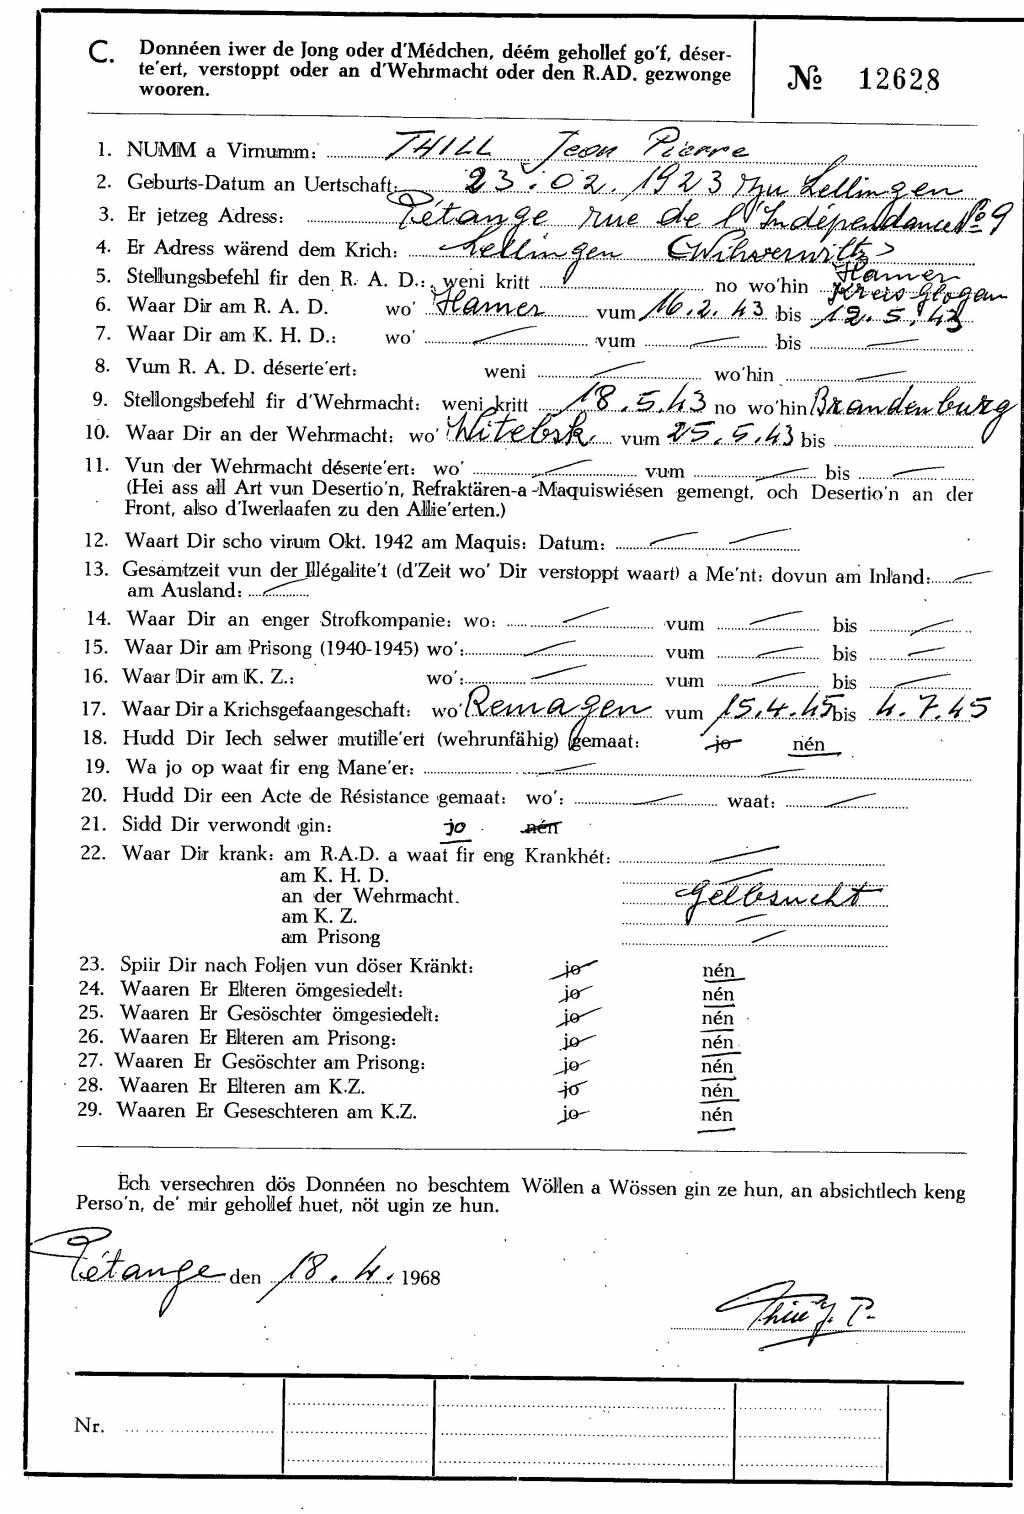 C. Donnéen iwer de Jong oder d'Médchen, déém gehollef go'f, déser-
te'ert, verstoppt oder an d'Wehrmacht oder den R.AD. gezwonge
wooren.
№ 12628
1. NUMM a Virnumm: THILL Jean Pierre
2. Geburts-Datum an Uertschaft: 23.02.1923 zu Lellingen
3. Er jetzeg Adress: Pétange rue de l'Indépendance No 9
4. Er Adress wärend dem Krich: Lellingen (Wilwerwiltz)
5. Stellungsbefehl fir den R. A. D.: weni kritt no wo'hin Hamer Kreis Glogau
6. Waar Dir am R. A. D. wo' Hamer vum 16.2.43 bis 12.5.43
7. Waar Dir am K. H. D.: wo' — vum — bis —
8. Vum R. A. D. déserte'ert: weni — wo'hin —
9. Stellongsbefehl fir d'Wehrmacht: weni kritt 18.5.43 no wo'hin Brandenburg
10. Waar Dir an der Wehrmacht: wo' Witebsk vum 25.5.43 bis
11. Vun der Wehrmacht déserte'ert: wo' — vum — bis —
(Hei ass all Art vun Desertio'n, Refraktären-a-Maquiswiésen gemengt, och Desertio'n an der
Front, also d'Iwerlaafen zu den Allie'erten.)
12. Waart Dir scho virum Okt. 1942 am Maquis: Datum: — —
13. Gesamtzeit vun der Illégalite't (d'Zeit wo' Dir verstoppt waart) a Me'nt: dovun am Inland: —
am Ausland: —
14. Waar Dir an enger Strofkompanie: wo: — vum — bis —
15. Waar Dir am Prisong (1940-1945) wo': — vum — bis —
16. Waar Dir am K. Z.: wo': — vum — bis —
17. Waar Dir a Krichsgefaangeschaft: wo' Remagen vum 15.4.45 bis 4.7.45
18. Hudd Dir Iech selwer mutille'ert (wehrunfähig) gemaat: jo nén
19. Wa jo op waat fir eng Mane'er: — —
20. Hudd Dir een Acte de Résistance gemaat: wo': — waat: —
21. Sidd Dir verwondt gin: jo nén
22. Waar Dir krank: am R.A.D. a waat fir eng Krankhét: —
am K. H. D. —
an der Wehrmacht. Gelbsucht
am K. Z. —
am Prisong —
23. Spiir Dir nach Foljen vun döser Kränkt: jo nén
24. Waaren Er Elteren ömgesiedelt: jo nén
25. Waaren Er Gesöschter ömgesiedelt: jo nén
26. Waaren Er Elteren am Prisong: jo nén
27. Waaren Er Gesöschter am Prisong: jo nén
28. Waaren Er Elteren am K.Z. jo nén
29. Waaren Er Geseschteren am K.Z. jo nén
Ech versechren dös Donnéen no beschtem Wöllen a Wössen gin ze hun, an absichtlech keng
Perso'n, de' mir gehollef huet, nöt ugin ze hun.
Pétange den 18.4.1968
Thill J. P.
Nr.